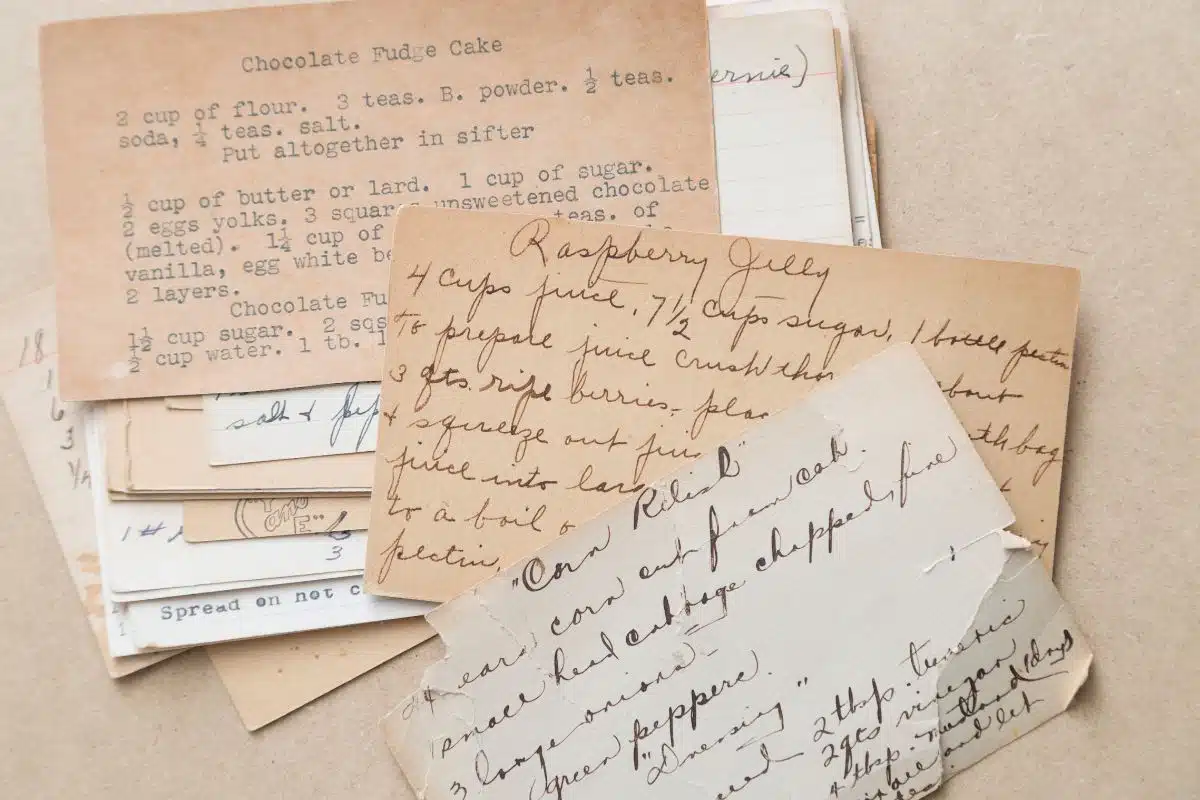 Chocolate Fudge Cake
2 cup of flour. 3 teas. B. powder. ½ teas.
soda, ¼ teas. salt.
Put altogether in sifter
½ cup of butter or lard. 1 cup of sugar.
2 eggs yolks. 3 squar unsweetened chocolate
(melted). 1¼ cup of teas. of
vanilla, egg white be
2 layers.
Chocolate Fu
1½ cup sugar. 2 sqs
½ cup water. 1 tb.
ernie)
Raspberry Jelly
4 cups juice, 7½ cups sugar, 1 bottle pectin
To prepare juice crush thor about
3 qts. ripe berries, plac
+ squeeze out jui th bag
juice into larg
to a boil
pectin,
"Corn Relish"
ears corn cut from cob.
1 small head cabbage chopped fine
3 large onions
green peppers.
"Dressing"
2 tbsp. tumeric
2 qts vinegar
4 tbsp. mustard
all and let
salt +
18
6
3
"Y and E"
1 #
3
Spread on not c